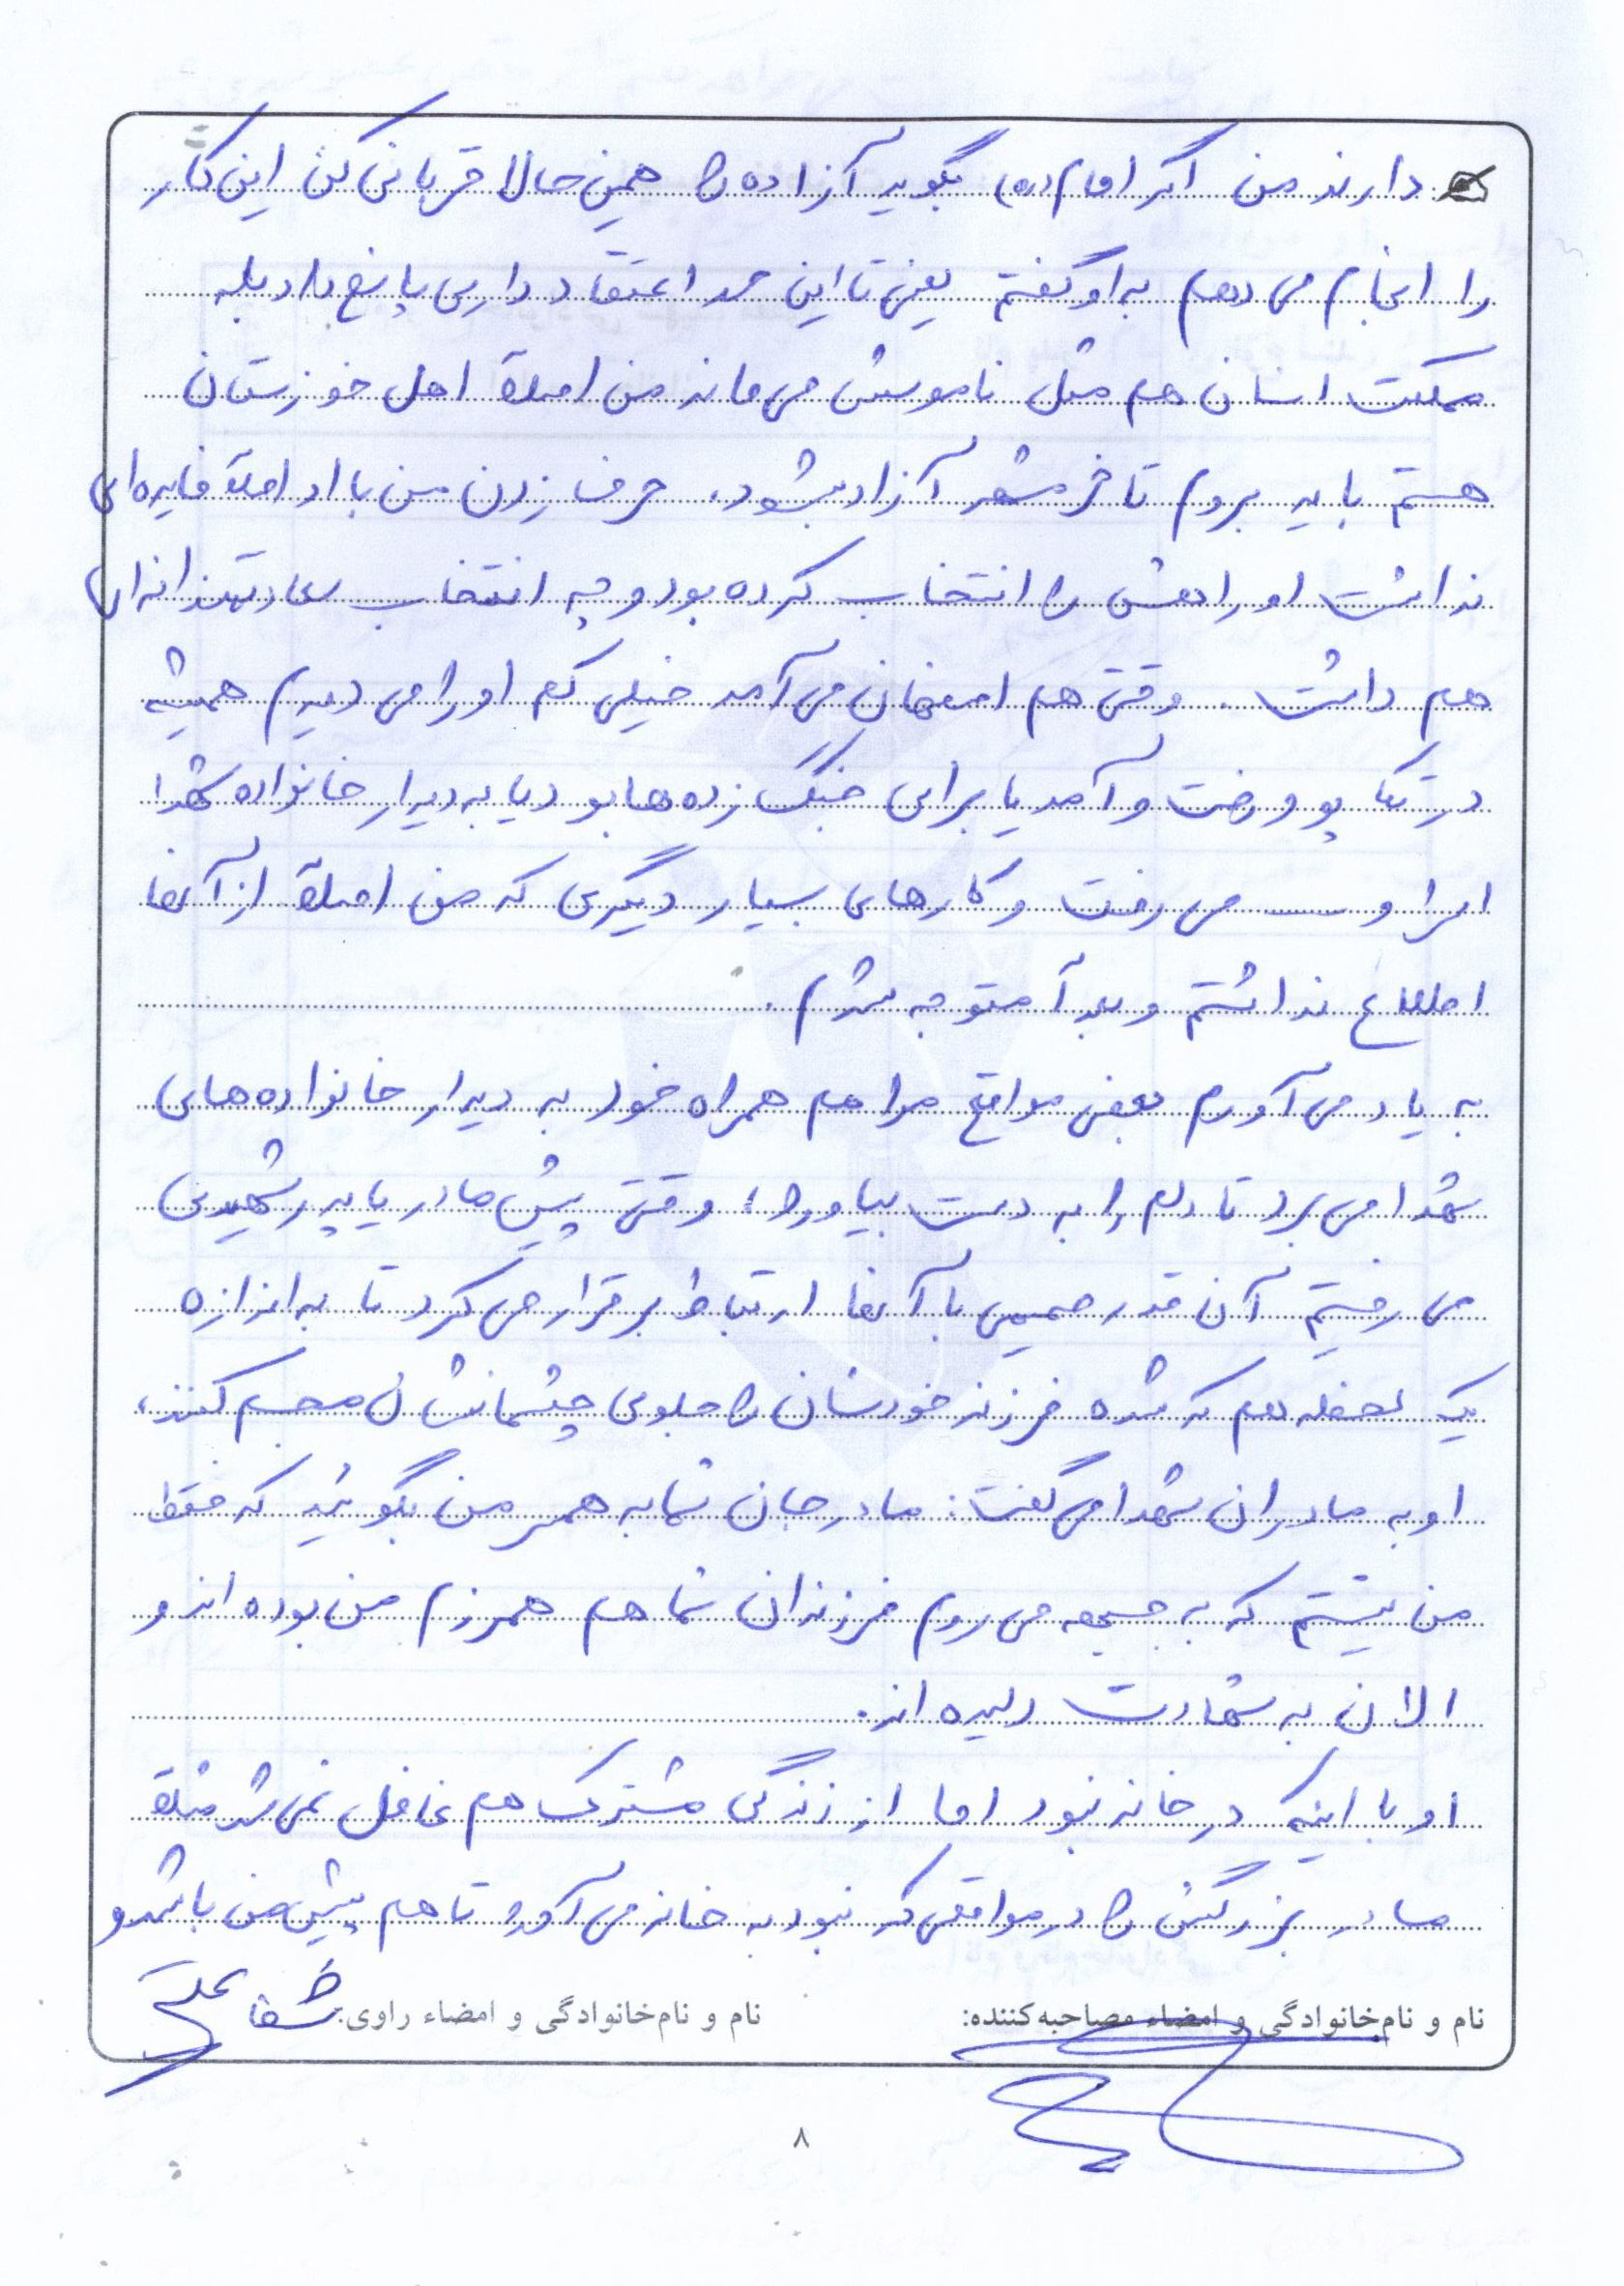 دارند من اگر امام (ره) بگوید آزاده را همین حالا قربانی کن این کار
را انجام می دهم به او گفتم یعنی تا این حد اعتقاد داری پاسخ داد بله
مملکت انسان هم مثل ناموسش می ماند من اصلاً اهل خوزستان
هستم باید بروم تا خرمشهر آزاد بشود، حرف زدن من با او اصلاً فایده ای
نداشت او راهش را انتخاب کرده بود و چه انتخاب سعادتمندانه ای
هم داشت. وقتی هم اصفهان می آمد خیلی کم او را می دیدم همیشه
در تکاپو و رفت و آمد یا برای جنگ زده ها بود یا به دیدار خانواده شهدا
اسرا و ـــــ می رفت و کارهای بسیار دیگری که من اصلاً از آنها
اطلاع نداشتم و بعداً متوجه شدم.
به یاد می آورم بعضی مواقع مرا هم همراه خود به دیدار خانواده های
شهدا می برد تا دلم را به دست بیاورد، وقتی پیش مادر یا پدر شهیدی
می رفتیم آن قدر صمیمی با آنها ارتباط برقرار می کرد تا به اندازه
یک لحظه هم که شده فرزند خودشان را جلوی چشمانشان مجسم کنند،
او به مادران شهدا می گفت: مادر جان شما به همسر من بگوئید که فقط
من نیستم که به جبهه می روم فرزندان شما هم همرزم من بوده اند و
الان به شهادت رسیده اند.
او با اینکه در خانه نبود اما از زندگی مشترک هم غافل نمی شد مثلاً
مادر بزرگش را در مواقعی که نبود به خانه می آورد تا هم پیش من باشد و
نام و نام‌خانوادگی و امضاء مصاحبه‌کننده: نام و نام‌خانوادگی و امضاء راوی:
۸